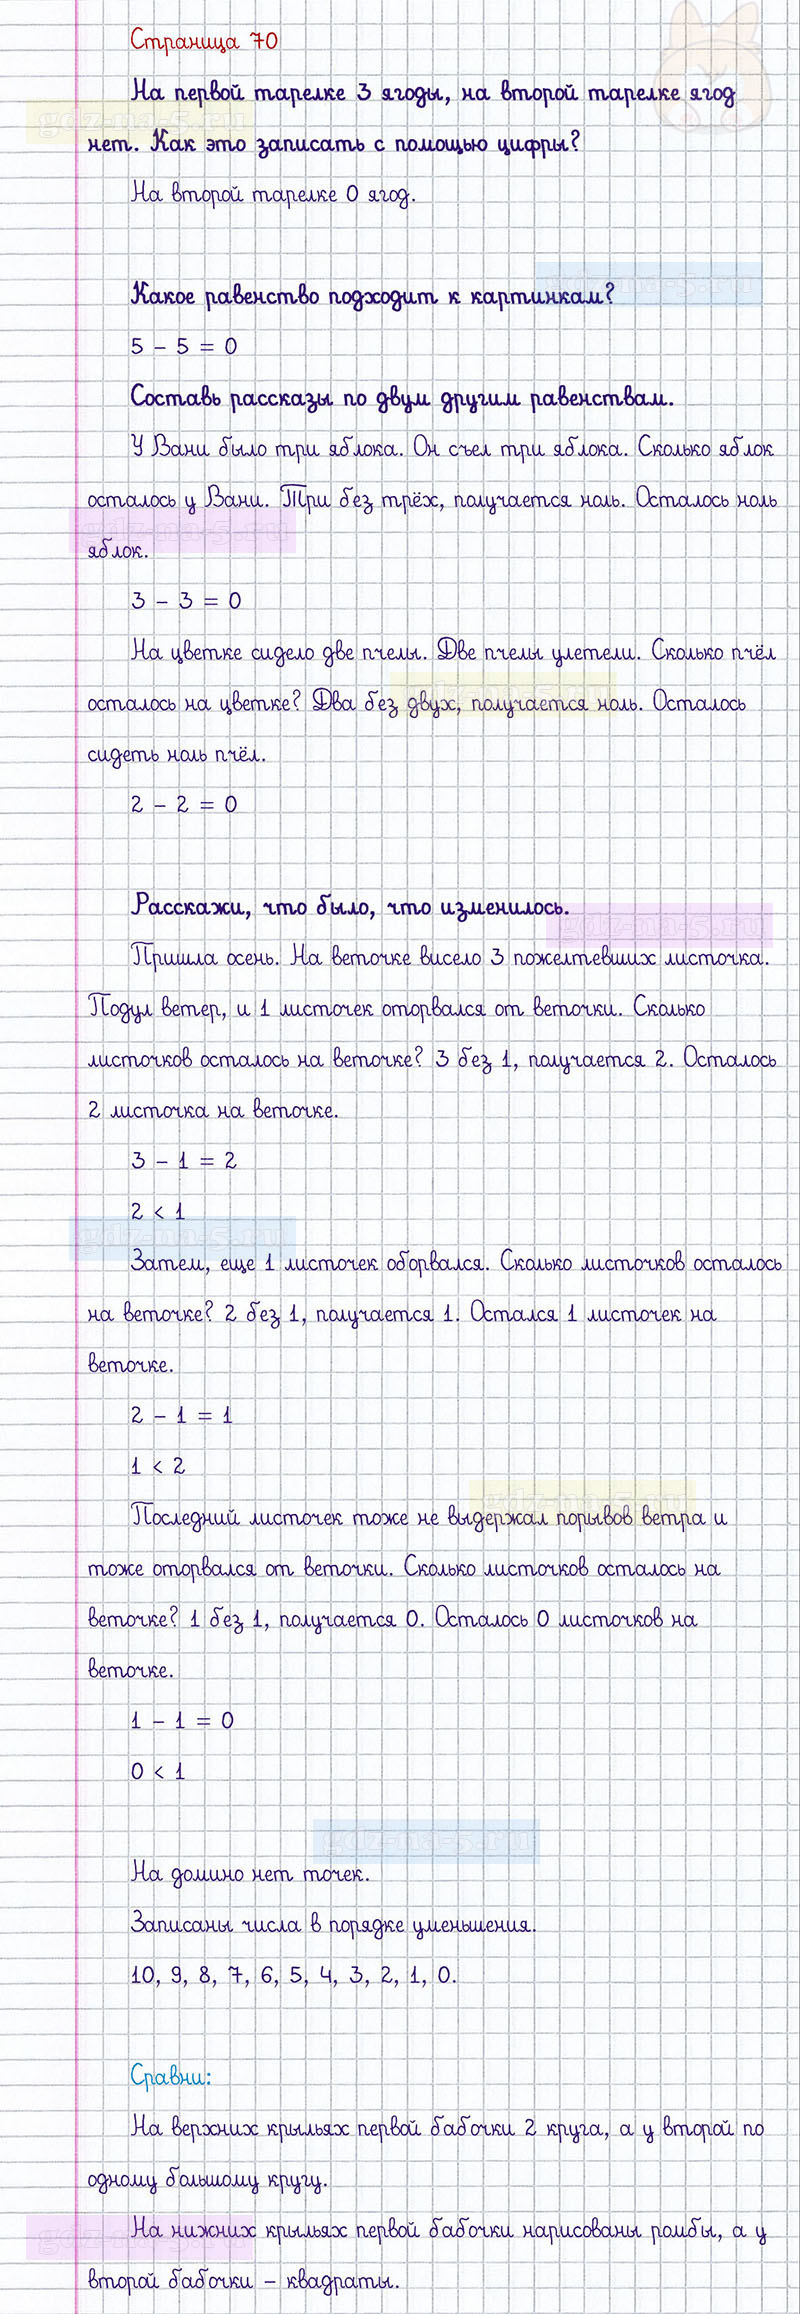 Страница 70
На первой тарелке 3 ягоды, на второй тарелке ягод
gdz-na-5.ru
нет. Как это записать с помощью цифры?
На второй тарелке 0 ягод.
gdz-na-5.ru
Какое равенство подходит к картинкам?
5 - 5 = 0
Составь рассказы по двум другим равенствам.
У Вани было три яблока. Он съел три яблока. Сколько яблок
осталось у Вани. Три без трёх, получается ноль. Осталось ноль
gdz-na-5.ru
яблок.
3 - 3 = 0
На цветке сидело две пчелы. Две пчелы улетели. Сколько пчёл
gdz-na-5.ru
осталось на цветке? Два без двух, получается ноль. Осталось
сидеть ноль пчёл.
2 - 2 = 0
Расскажи, что было, что изменилось.
gdz-na-5.ru
Пришла осень. На веточке висело 3 пожелтевших листочка.
Подул ветер, и 1 листочек оторвался от веточки. Сколько
листочков осталось на веточке? 3 без 1, получается 2. Осталось
2 листочка на веточке.
3 - 1 = 2
2 < 1
gdz-na-5.ru
Затем, еще 1 листочек оборвался. Сколько листочков осталось
на веточке? 2 без 1, получается 1. Остался 1 листочек на
веточке.
2 - 1 = 1
1 < 2
gdz-na-5.ru
Последний листочек тоже не выдержал порывов ветра и
тоже оторвался от веточки. Сколько листочков осталось на
веточке? 1 без 1, получается 0. Осталось 0 листочков на
веточке.
1 - 1 = 0
0 < 1
gdz-na-5.ru
На домино нет точек.
Записаны числа в порядке уменьшения.
10, 9, 8, 7, 6, 5, 4, 3, 2, 1, 0.
Сравни:
На верхних крыльях первой бабочки 2 круга, а у второй по
одному большому кругу.
gdz-na-5.ru
На нижних крыльях первой бабочки нарисованы ромбы, а у
второй бабочки – квадраты.